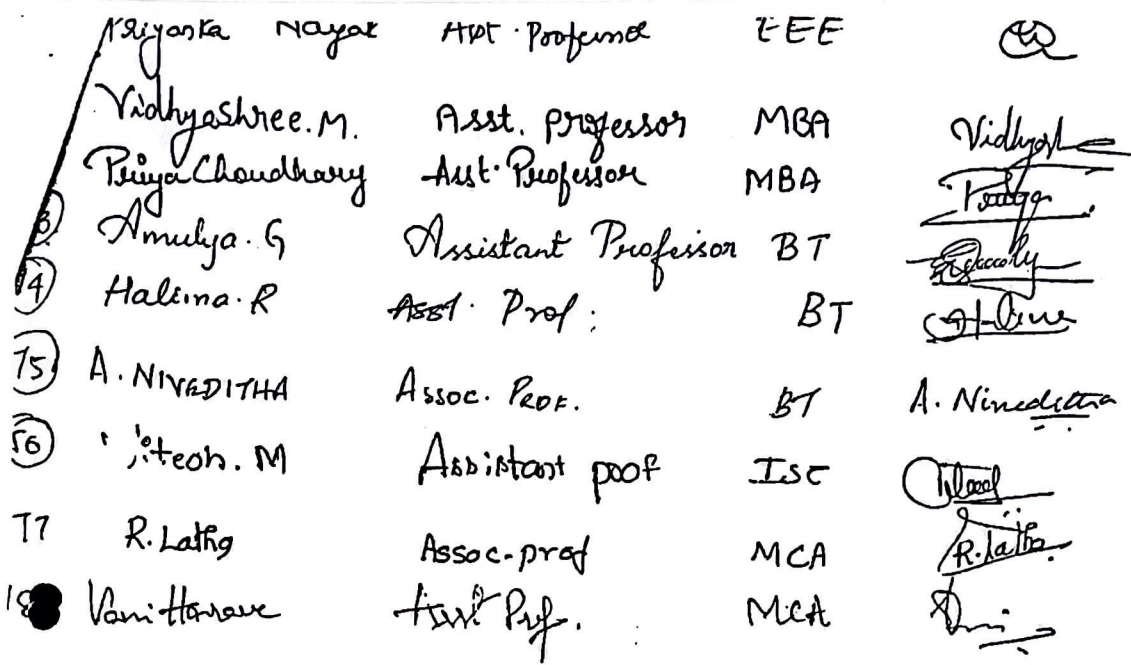 Priyanka Nayak Asst. Professor EEE
Vidhyashree.M. Asst. professor MBA Vidhyash
Priya Choudhary Asst. Professor MBA Priya
3 Amulya.G Assistant Professor BT
14 Halima.R Asst. Prof: BT Halima
15 A. NIVEDITHA Assoc. PROF. BT A. Niveditha
16 M Assistant prof ISE
17 R. Latha Assoc-prof MCA R. latha
18 Vani Asst Prof. MCA